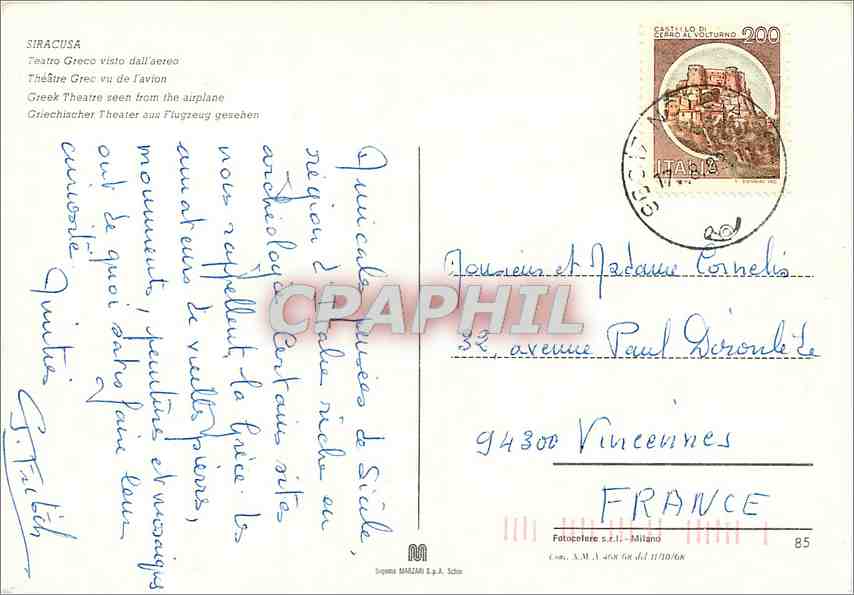 SIRACUSA
Teatro Greco visto dall'aereo
Théâtre Grec vu de l'avion
Greek Theatre seen from the airplane
Griechischer Theater aus Flugzeug gesehen
CASTELLO DI
CERRO AL VOLTURNO
200
ITALIA
17 8 8
Amicales pensées de Sicile,
région d'Italie riche en
archéologie. Certains sites
nous rappellent la Grèce. Les
amateurs de vieilles pierres,
monuments, peintures et mosaïques
ont de quoi satisfaire leur
curiosité.
Amitiés
Monsieur et Madame Cornelis
32, avenue Paul Déroulède
94300 Vincennes
FRANCE
CPAPHIL
Fotocelere s.r.l. - Milano
85
Com. S.M.A 468/68 del 11/10/68
M
MARZARI S.p.A. Schio